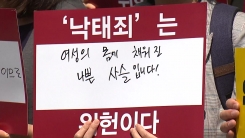 '낙태죄' 는
여성의 몸에 채워진
나쁜 사슬입니다!
위헌이다
이므로